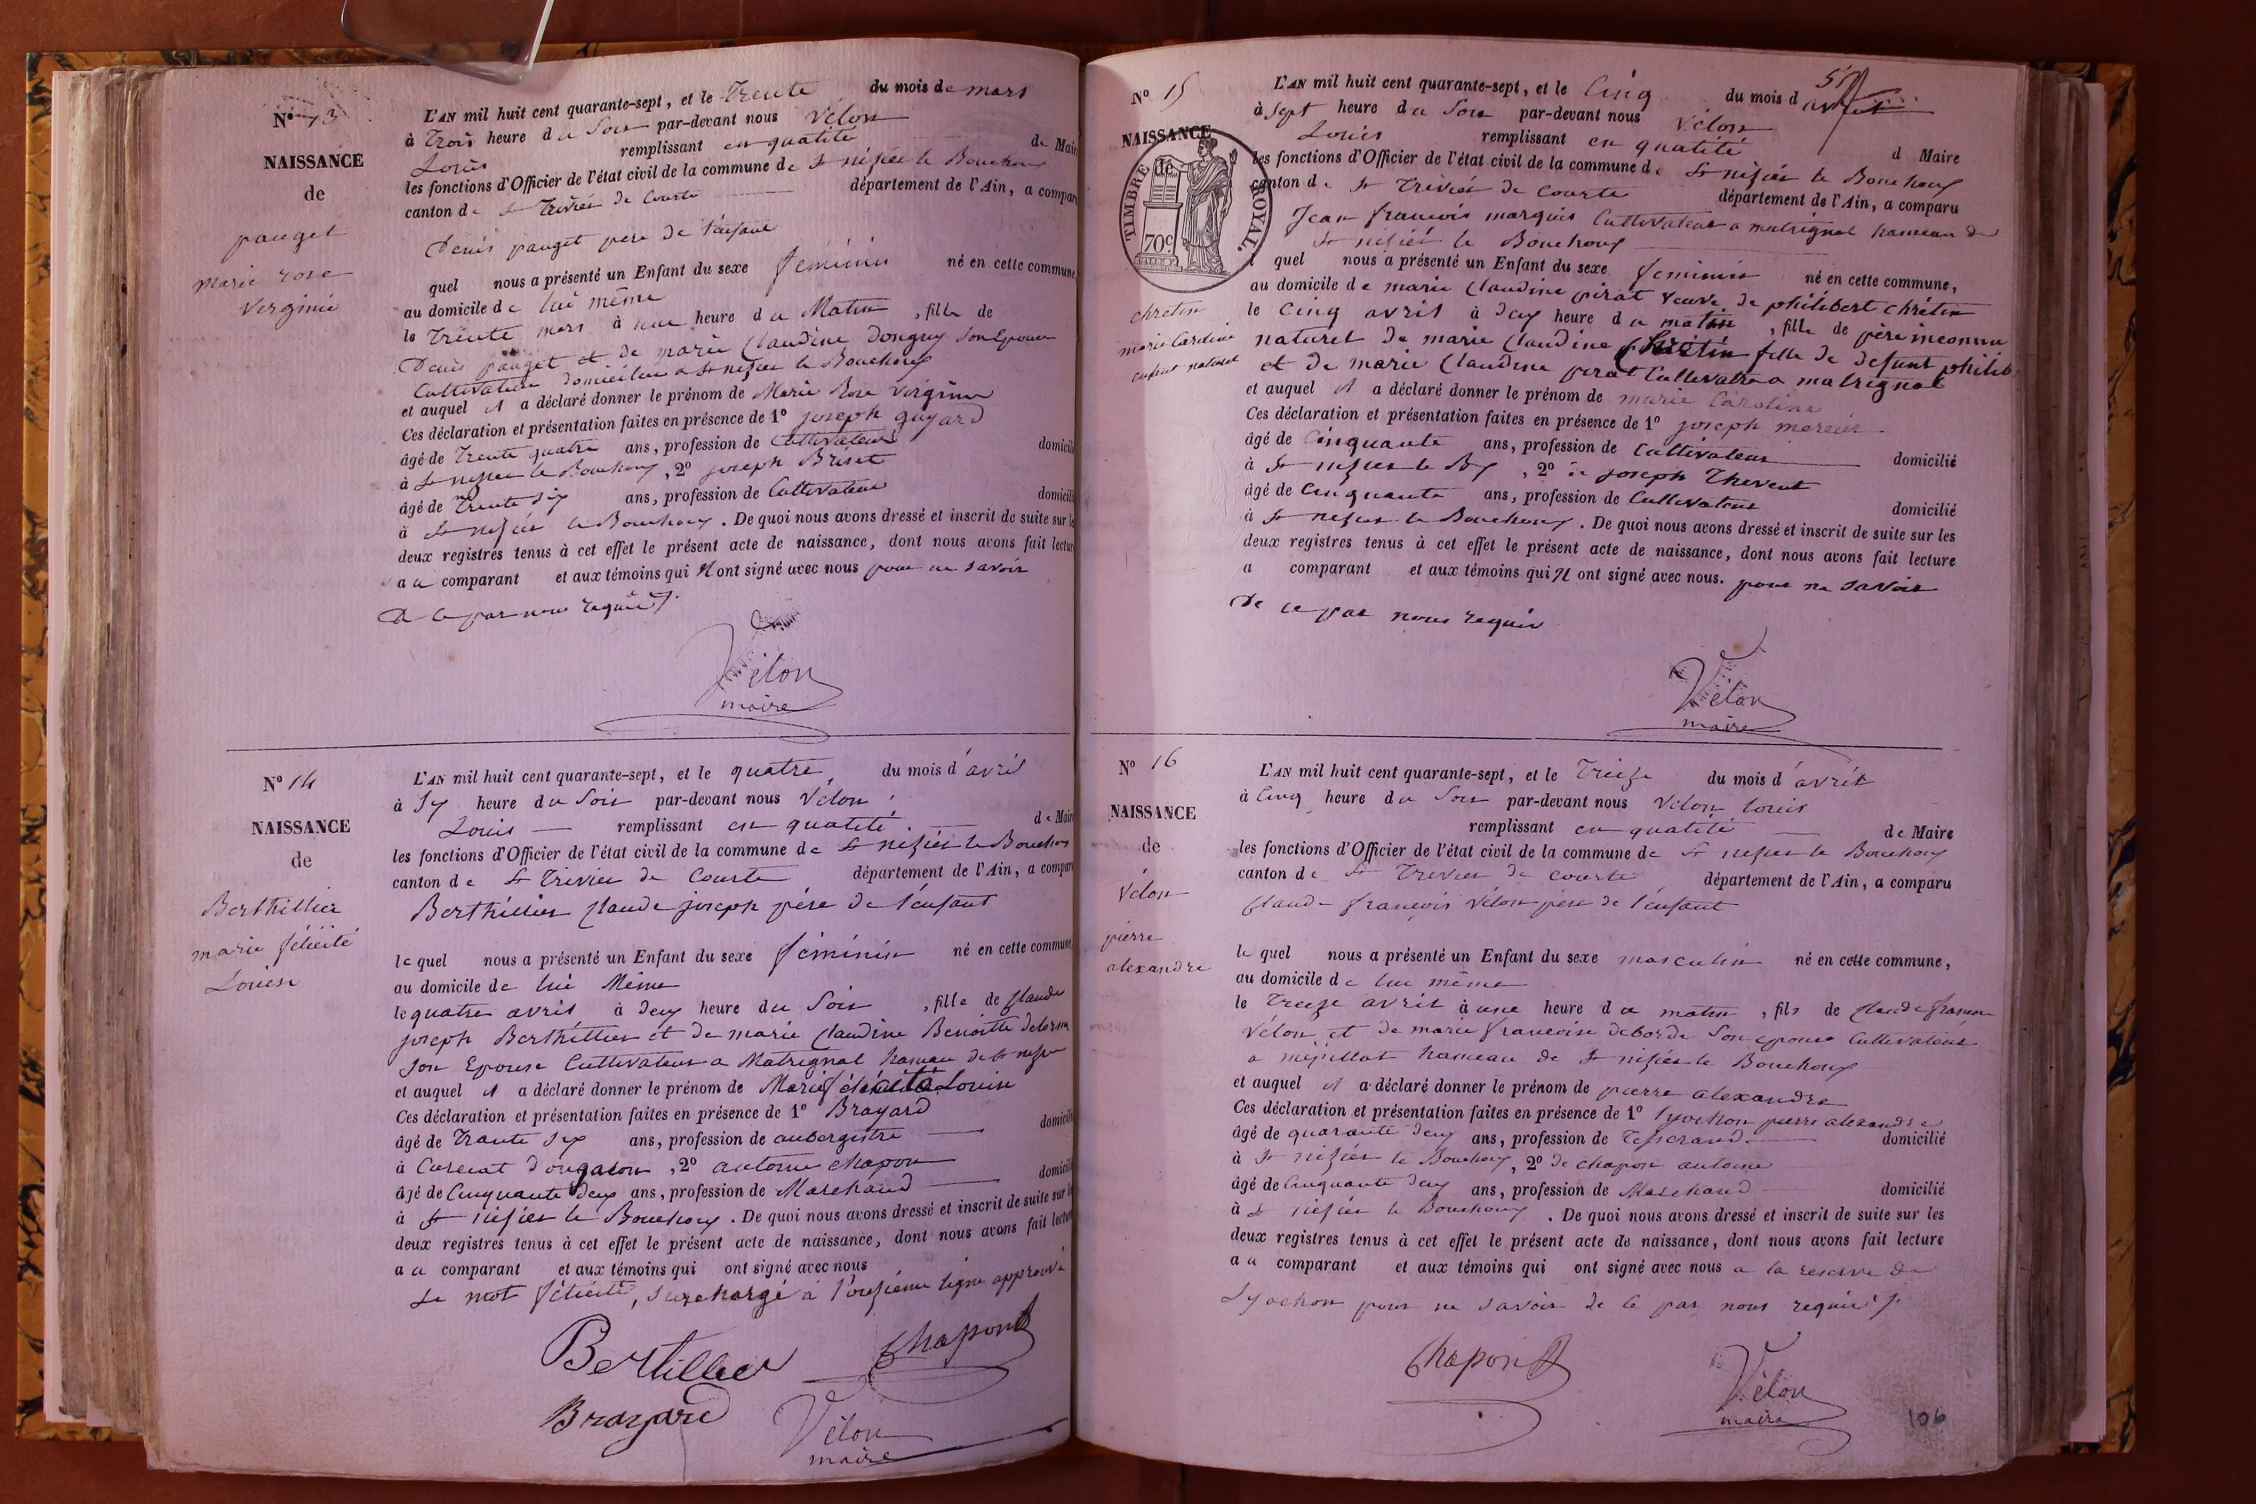 N° 13
NAISSANCE
de
pauget
marie rose
virginie
L'AN mil huit cent quarante-sept, et le Trente du mois de mars
à Trois heure du Soir par-devant nous Vélon
Louis remplissant en qualité de Mair
les fonctions d'Officier de l'état civil de la commune de St nisier le Bouchoux
canton de St Trivier de Courte département de l'Ain, a compar
Denis pauget pere de l'enfant
quel nous a présenté un Enfant du sexe feminin né en cette commune
au domicile de lui même
le Trente mars à une heure du Matin, fille de
Denis pauget et de marie Claudine Donguy son Epouse
Cultivateur domicilié a St nisier le Bouchoux
et auquel il a déclaré donner le prénom de Marie Rose Virginie
Ces déclaration et présentation faites en présence de 1° joseph guyard
âgé de Trente quatre ans, profession de Cultivateur domicili
à St nisier le Bouchoux, 2° joseph Briset
âgé de Trente six ans, profession de Cultivateur domicili
à St nisier le Bouchoux. De quoi nous avons dressé et inscrit de suite sur le
deux registres tenus à cet effet le présent acte de naissance, dont nous avons fait lectur
au comparant et aux témoins qui n'ont signé avec nous pour ne savoir
de ce par nous requis
Vélon
maire
N° 14
NAISSANCE
de
Berthillier
marie félicité
Louise
L'AN mil huit cent quarante-sept, et le quatre du mois d'avril
à Six heure du Soir par-devant nous Vélon
Louis remplissant en qualité de Mair
les fonctions d'Officier de l'état civil de la commune de St nisier le Bouchoux
canton de St Trivier de Courte département de l'Ain, a compar
Berthillier Claude joseph père de l'enfant
le quel nous a présenté un Enfant du sexe féminin né en cette commune
au domicile de lui Même
le quatre avril à deux heure du Soir, fille de Claude
joseph Berthillier et de marie Claudine Benoitte
Son Epouse Cultivateur a Matrignat hameau de St nisier
et auquel il a déclaré donner le prénom de Marie félicité Louise
Ces déclaration et présentation faites en présence de 1° Brayard
âgé de Trante six ans, profession de aubergiste domicili
à Curciat dongalon, 2° antoine chapon
âgé de Cinquante deux ans, profession de Marchand domicili
à St nisier le Bouchoux. De quoi nous avons dressé et inscrit de suite sur le
deux registres tenus à cet effet le présent acte de naissance, dont nous avons fait lectur
au comparant et aux témoins qui ont signé avec nous
Le mot félicité, surchargé à l'onzième ligne approuvé
Bertillier Chapon
Brayard Vélon
maire
N° 15
NAISSANCE
de
TIMBRE ROYAL.
70c
chretin
marie Caroline
enfant naturel
L'AN mil huit cent quarante-sept, et le Cinq du mois d avril
à Sept heure du Soir par-devant nous Vélon
Louis remplissant en qualité d Maire
les fonctions d'Officier de l'état civil de la commune de St nisier le Bouchoux
canton de St Trivier de Courte département de l'Ain, a comparu
Jean françois marquis Cultivateur a matrignat hameau de
St nisier le Bouchoux
quel nous a présenté un Enfant du sexe feminin né en cette commune,
au domicile de marie Claudine pirat veuve de philibert chrétin
le Cinq avril à deux heure du matin, fille de père inconnu
naturel de marie Claudine Chrétin fille de defunt philib
et de marie Claudine pirat Cultivatre a matrignat
et auquel il a déclaré donner le prénom de marie Caroline
Ces déclaration et présentation faites en présence de 1° joseph mercier
âgé de Cinquante ans, profession de Cultivateur domicilié
à St nisier le Bx, 2° de joseph Thevent
âgé de Cinquante ans, profession de Cultivateur domicilié
à St nisier le Bouchoux. De quoi nous avons dressé et inscrit de suite sur les
deux registres tenus à cet effet le présent acte de naissance, dont nous avons fait lecture
a comparant et aux témoins qui n ont signé avec nous. pour ne savoir
de ce par nous requis
Vélon
maire
N° 16
NAISSANCE
de
Vélon
pierre
alexandre
L'AN mil huit cent quarante-sept, et le Treize du mois d'avril
à Cinq heure du Soir par-devant nous Vélon Louis
remplissant en qualité de Maire
les fonctions d'Officier de l'état civil de la commune de St nisier le Bouchoux
canton de St Trivier de courte département de l'Ain, a comparu
Claude françois Vélon père de l'enfant
le quel nous a présenté un Enfant du sexe masculin né en cette commune,
au domicile de lui même
le Treize avril à une heure du matin, fils de Claude françois
Vélon et de marie françoise deborde Son epouse Cultivateur
a mépillat hameau de St nisier le Bouchoux
et auquel il a déclaré donner le prénom de pierre alexandre
Ces déclaration et présentation faites en présence de 1° Lyochon pierre alexandre
âgé de quarante deux ans, profession de Tisserand domicilié
à St nisier le Bouchoux, 2° de chapon antoine
âgé de Cinquante deux ans, profession de Marchand domicilié
à St nisier le Bouchoux. De quoi nous avons dressé et inscrit de suite sur les
deux registres tenus à cet effet le présent acte de naissance, dont nous avons fait lecture
au comparant et aux témoins qui ont signé avec nous a la reserve de
Lyochon pour ne savoir de ce par nous requis
Chapon
Vélon
maire
106